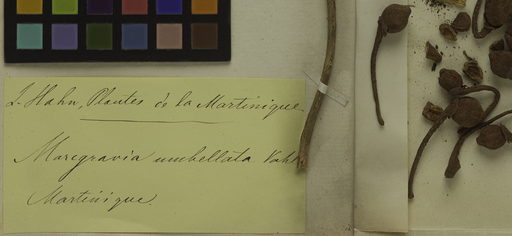 L. Hahn, Plantes de la Martinique
Marcgravia umbellata Vahl.
Martinique.